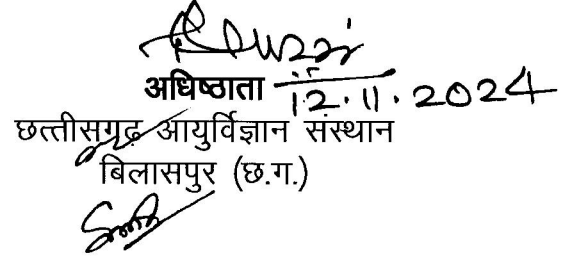 अधिष्ठाता 12.11.2024
छत्तीसगढ़ आयुर्विज्ञान संस्थान
बिलासपुर (छ.ग.)